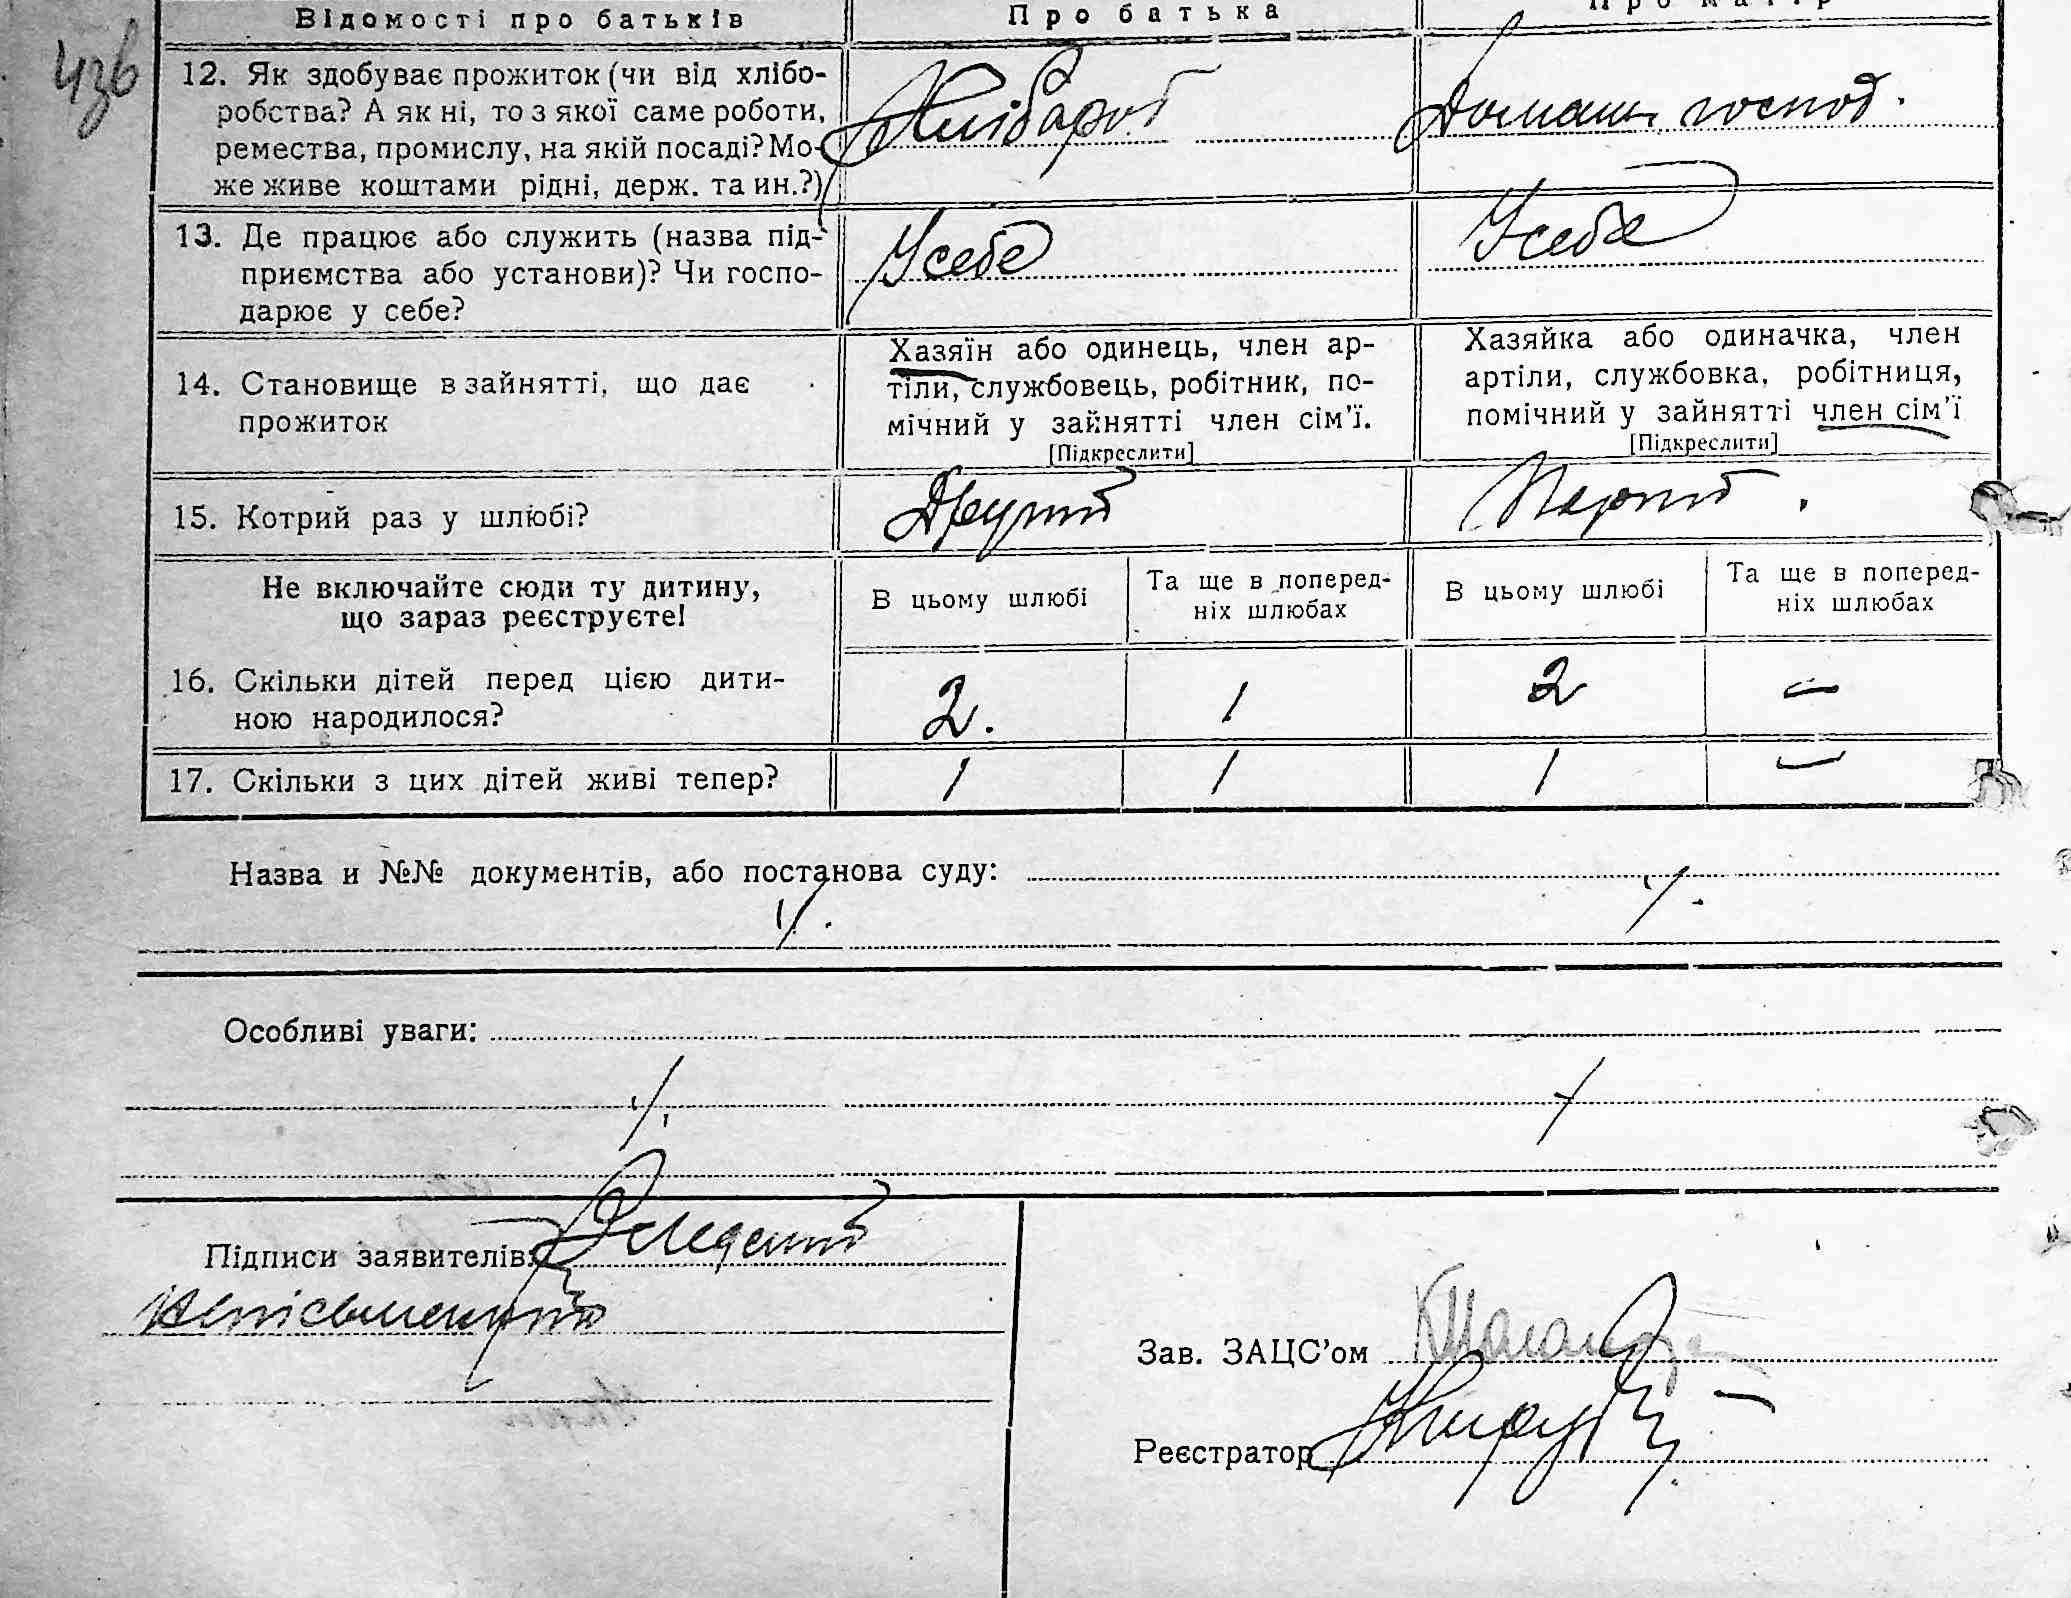 Відомості про батьків
Про батька
Про матір
12. Як здобуває прожиток (чи від хлібо-
робства? А як ні, то з якої саме роботи,
ремества, промислу, на якій посаді? Мо-
же живе коштами рідні, держ. та ин.?)
Хлібороб
Домашн. господ.
13. Де працює або служить (назва під-
приємства або установи)? Чи госпо-
дарює у себе?
У себе
У себе
14. Становище в зайнятті, що дає
прожиток
Хазяїн або одинець, член ар-
тіли, службовець, робітник, по-
мічний у зайнятті член сім'ї.
[Підкреслити]
Хазяйка або одиначка, член
артіли, службовка, робітниця,
помічний у зайнятті член сім'ї
[Підкреслити]
15. Котрий раз у шлюбі?
Другий
Перший.
Не включайте сюди ту дитину,
що зараз реєструєте!
В цьому шлюбі
Та ще в поперед-
ніх шлюбах
В цьому шлюбі
Та ще в поперед-
ніх шлюбах
16. Скільки дітей перед цією дити-
ною народилося?
2. 1 2 —
17. Скільки з цих дітей живі тепер?
1 1 1 —
Назва и №№ документів, або постанова суду:
Особливі уваги:
Підписи заявителів:
Зав. ЗАЦС'ом
Реєстратор